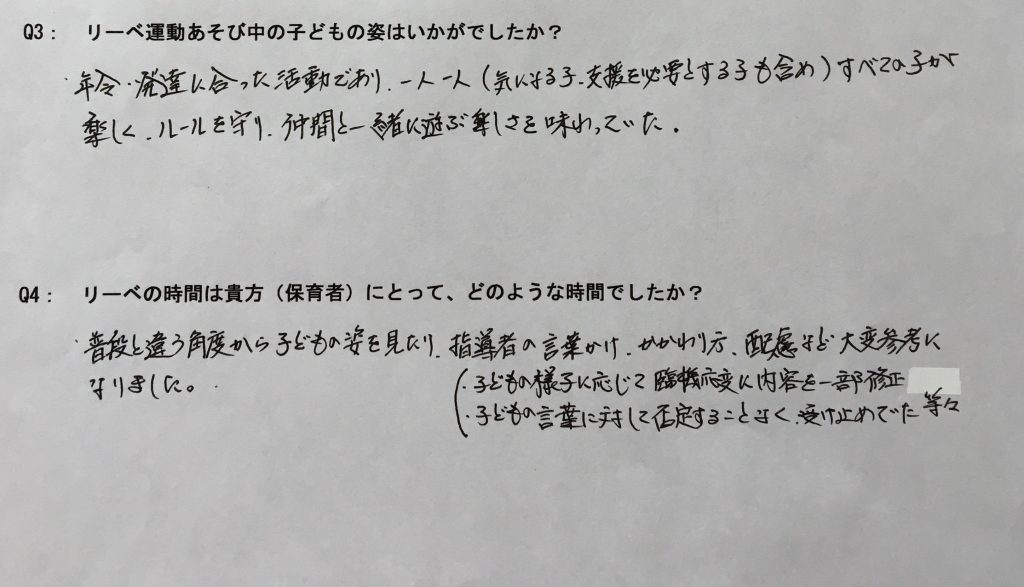 Q3： リーベ運動あそび中の子どもの姿はいかがでしたか？
・年令・発達に合った活動であり、一人一人（気になる子、支援を必要とする子も含め）すべての子が
楽しく、ルールを守り、仲間と一緒に遊ぶ楽しさを味わっていた。
Q4： リーベの時間は貴方（保育者）にとって、どのような時間でしたか？
・普段と違う角度から子どもの姿を見たり、指導者の言葉かけ、かかわり方、配慮など大変参考に
なりました。
・子どもの様子に応じて臨機応変に内容を一部修正
・子どもの言葉に対して否定することなく、受け止めていた 等々